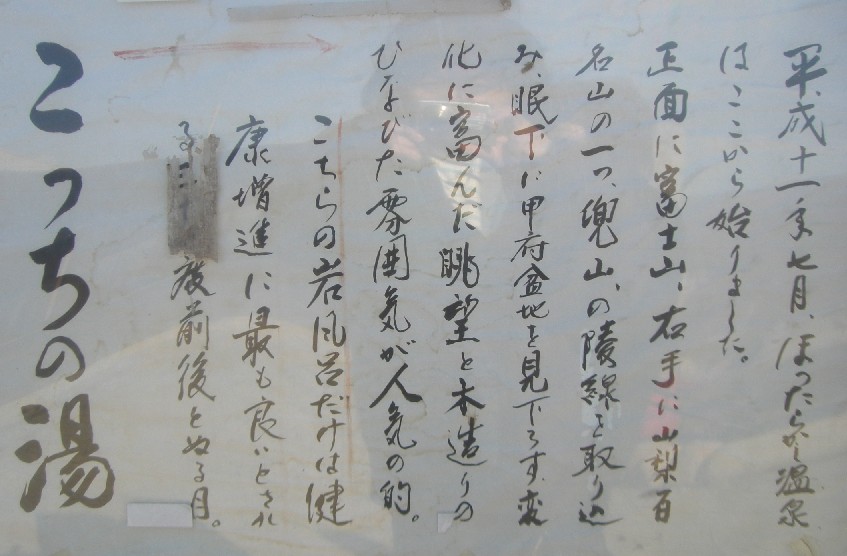 平成十一年七月、ほったらかし温泉
はここから始りました。
正面に富士山、右手に山梨百
名山の一つ、兜山、の陵線を取り込
み、眼下に甲府盆地を見下ろす、変
化に富んだ眺望と木造りの
ひなびた雰囲気が人気の的。
こちらの岩風呂だけは健
康増進に最も良いとされ
る 度前後とぬる目。
こっちの湯